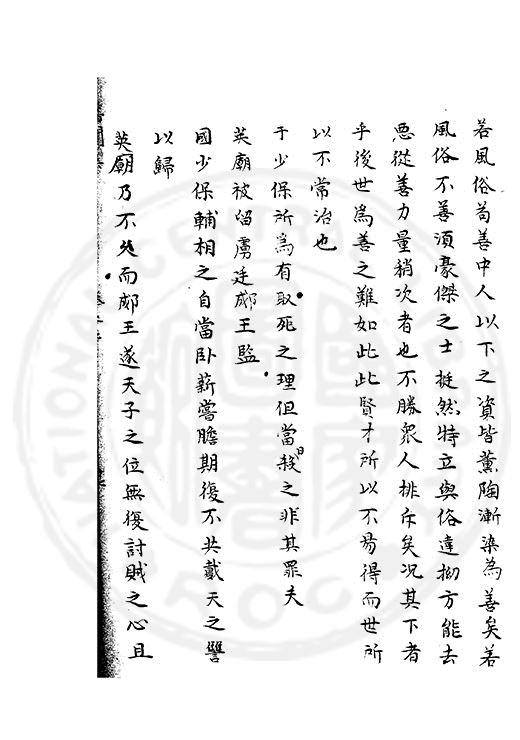 若風俗苟善中人以下之資皆薰陶漸染為善矣若
風俗不善須豪傑之士挺然特立與俗違拗方能去
惡從善力量稍次者也不勝衆人排斥矣况其下者
乎後世爲善之難如此此賢才所以不易得而世所
以不常治也
于少保所爲有取死之理但當日殺之非其罪夫
英廟被留虜廷郕王監
國少保輔相之自當卧薪嘗膽期復不共戴天之讐
以歸
英廟乃不然而郕王遂天子之位無復討賊之心且